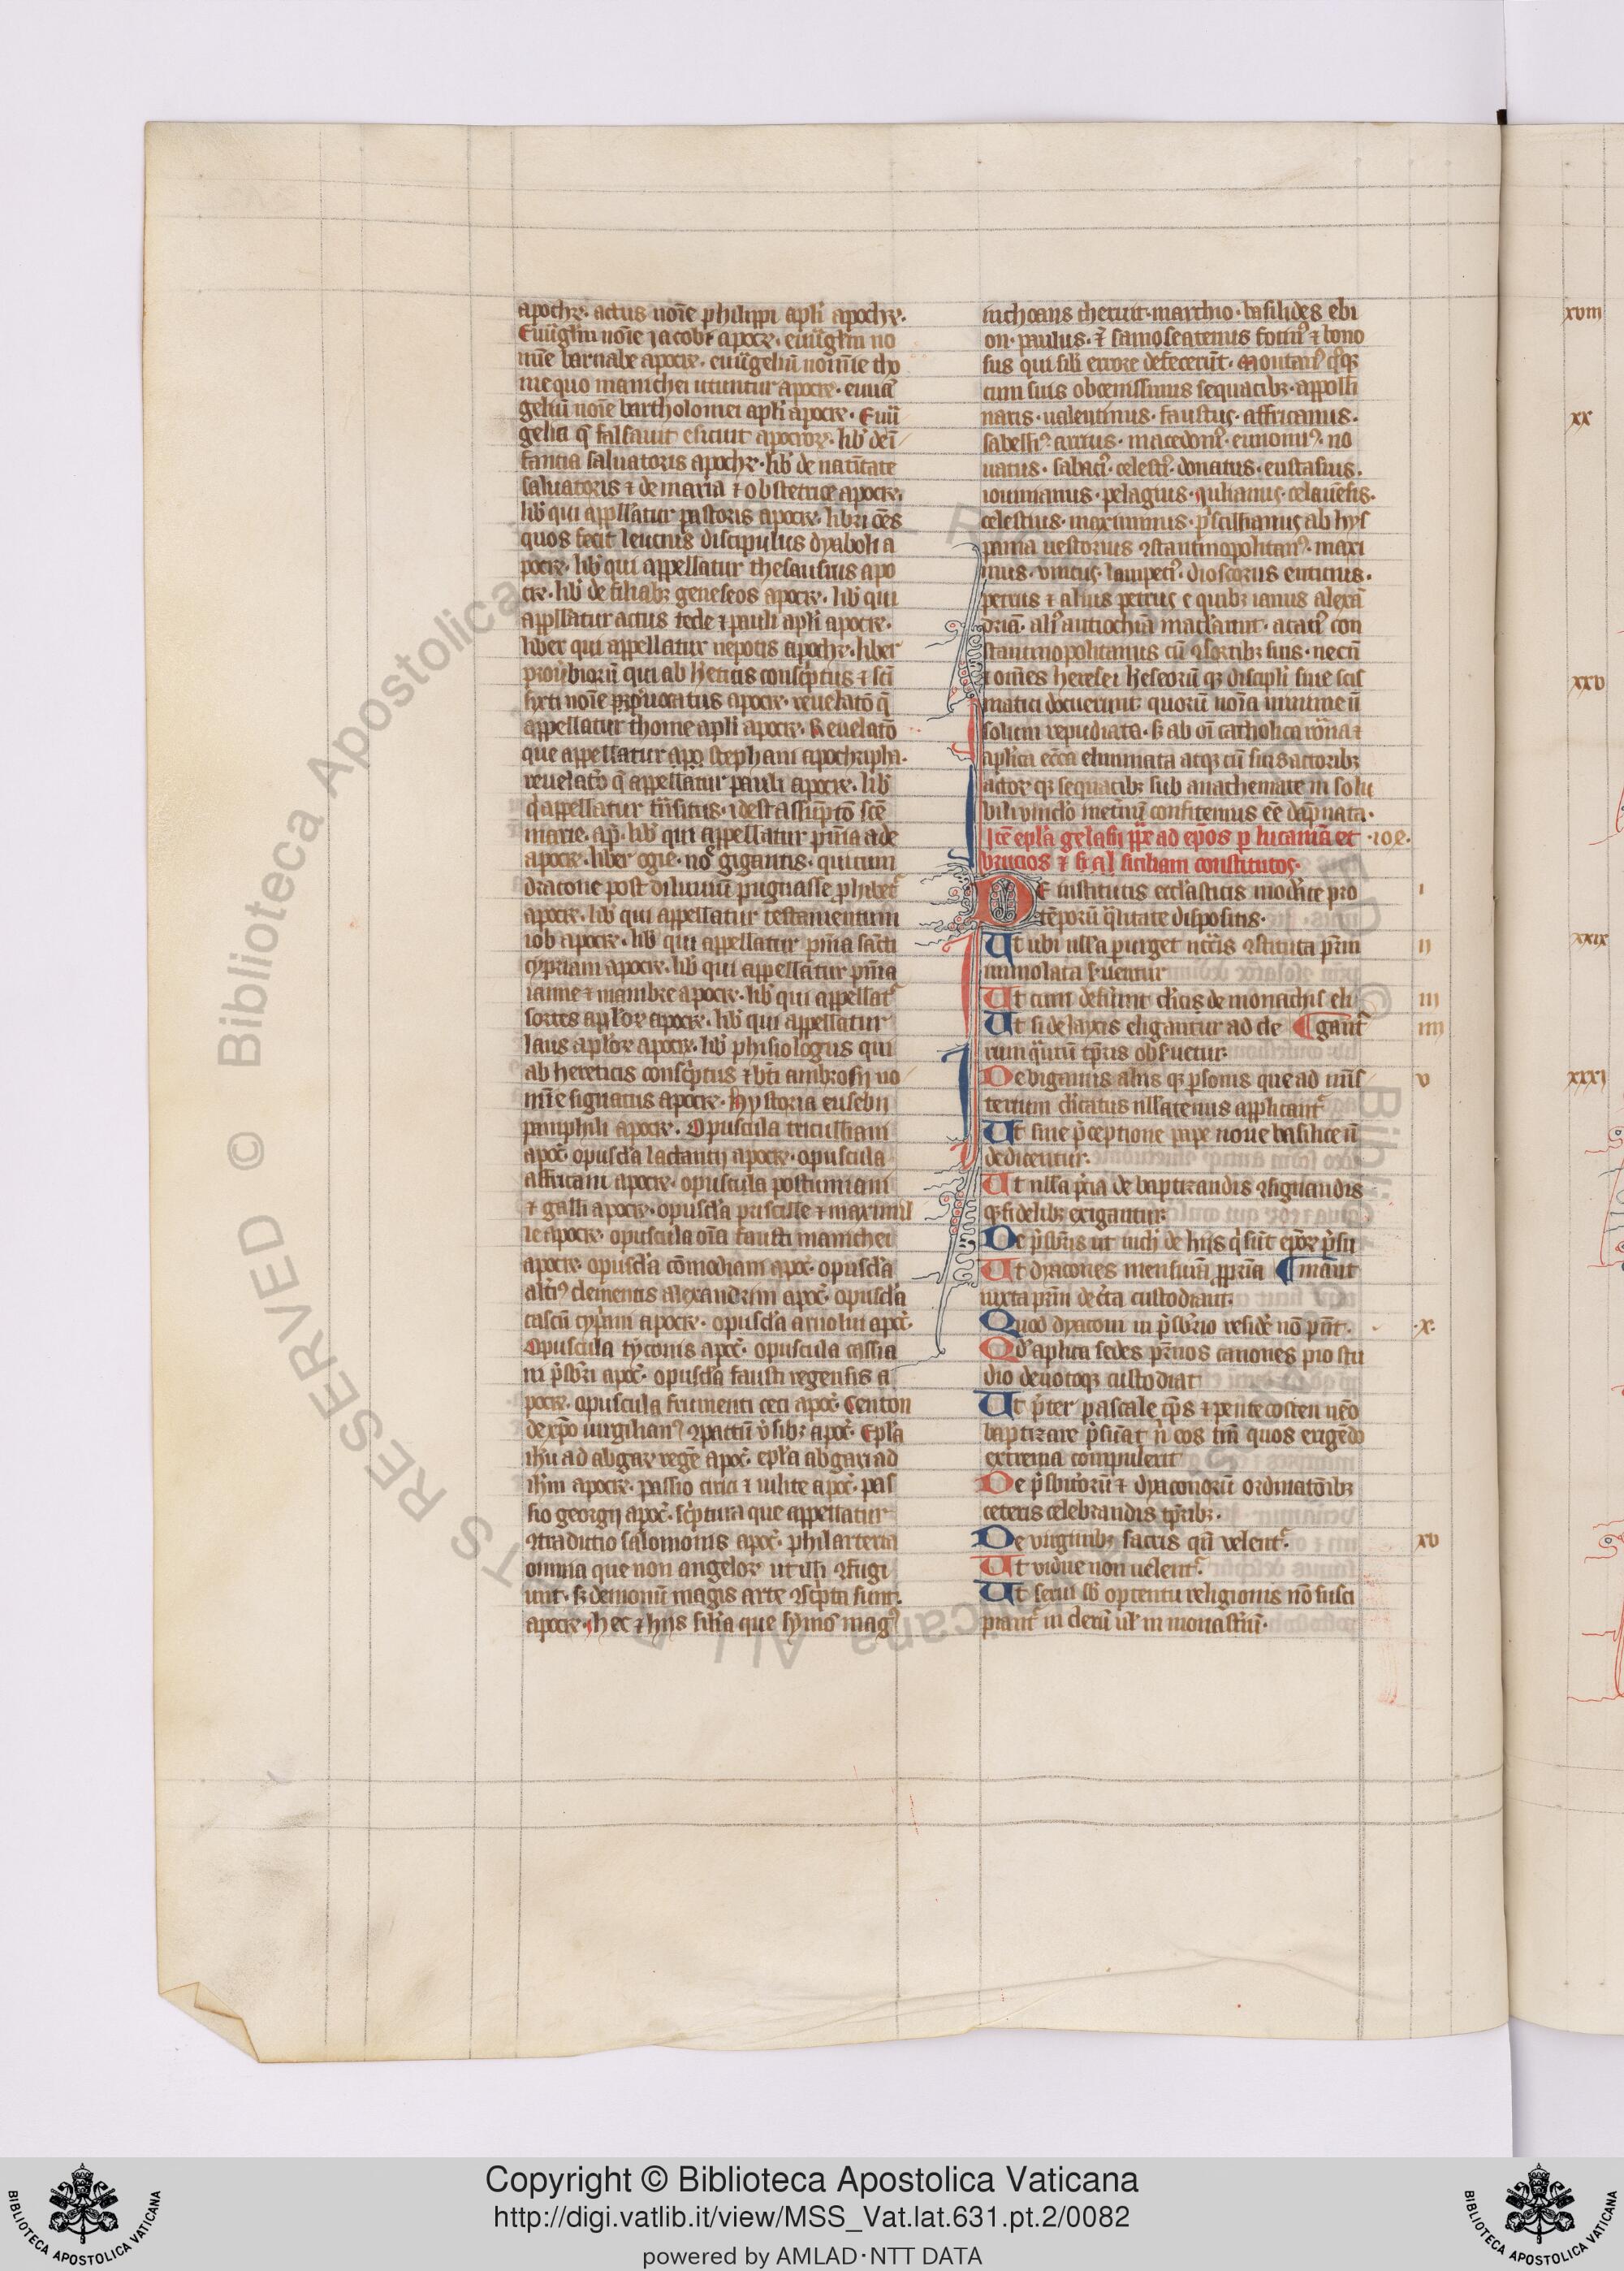 apocħr̃. actus noīe philippi apl̃i apocħr̃.
Euūgl̃iu noīe jacobi apocr̃. euūgl̃iu no
mīe barnabe apocr̃. euūgeliū nomīe tho
me quo manichei utuntur apocr̃. euua
geliū noīe bartholomei apl̃i apocr̃. Euū
gelia q̄ falsauit esicius apocror̃. lib̾ de ī
fantia saluatoris apochr̃. lib̾ de natiuitate
saluatoris ⁊ de maria ⁊ obstetrice apocr̃.
lib̾ qui appllatur pastoris apocr̃. libri oēs
quos fecit leucius discipulus dyaboli a
pocr̃. lib̾ qui appellatur thesaurus apo
cr̃. lib̾ de filiabꝫ geneseos apocr̃. lib̾ qui
appllatur actus tecle ⁊ pauli apl̃i apocr̃.
liber qui appellatur nepotis apochr̃. liber
prouerbiorū qui ab h̾eticis conscͥptus ⁊ sc̄i
sixti noīe p̄notatus apocr̃. reuelatō q̄
appellatur thome apl̃i apocr̃. Reuelatō
que appellatur apo stephani apochripha.
reuelatō q̄ appellatur pauli apocr̃. lib̾
q̇ appellatur trāsitus. id est assūptō sc̄e
marie. ap̄. lib̾ qui appellatur pn̄ia ade
apocr̃. liber ogie. noīe gigantis. qui cum
dracone post diluuiū pugnasse ꝑhibet᷑
apocr̃. lib̾ qui appellatur testamentum
iob apocr̃. lib̾ qui appellatur pn̄ia sancti
cypriani apocr̃. lib̾ qui appellatur pn̄ia
ianne ⁊ mambre apocr̃. lib̾ qui appellat᷑
sortes apl̃or̃ apocr̃. lib̾ qui appellatur
laus apl̃or̃ apocr̃. lib̾ phisiologus qui
ab hereticis conscͥptus ⁊ bt̄i ambrosij no
mīe signatus apocr̃. Hystoria eusebii
pamphili apocr̃. Opuscula tertulliani
apoc̾. opuscl̃a lactantij apocr̃. opuscula
affricani apocr̃. opuscula postumiani
⁊ galli apocr̃. opuscl̃a priscille ⁊ maximil
le apocr̃. opuscula oīa fausti manichei
apocr̃. opuscl̃a cōmodiani apoc̾. opuscl̃a
alt̾iꝰ clementis alexandrini apoc̾. opuscl̃a
tascii cypͥani apocr̃. opuscl̃a arnobii apoc̾.
Opuscula tyconis apoc̾. opuscula cassia
ni p̄sbr̃i apoc̾. opuscl̃a fausti regensis a
pocr̃. opuscula frumenti ceci apoc̾. Centon
de xp̄o uirgilianꝰ ꝯpactū v̾sibꝫ apoc̾. Epl̃a
ih̄u ad abgar̃ regē apoc̾. epl̃a abgari ad
ih̄m apocr̃. passio cirici ⁊ iulite apoc̾. pas
sio georgij apoc̾. scͥptura que appellatur
ꝯtradictio salomonis apoc̾. philarteria
omnia que non angelor̃ ut illi ꝯfugi
unt. sꝫ demonū magis arte ꝯscͥpta sunt.
apocr̃. hec ⁊ hijs sil̃ia que symō magꝰ
inchoans
marchio. basilides ebi
on. paulus. ⁊ samosatenus fotinꝰ ⁊ bono
sus qui sili errore defecerūt. Montanꝰ qͦqꝫ
cum suis obcenissimis sequacibꝫ. appolli
naris. ualentinus. faustus. affricanus.
sabelliꝰ arrius. macedoniꝰ. eunomiꝰ. no
uatus. sabatiꝰ. celestꝰ. donatus. eustasius.
iouinianus. pelagius. iulianus. celanēsis.
celestius. maximinus. pͥscillianus ab hys
pania nestorius ꝯstantinopolitanꝰ. maxi
mus. vnicus. lampetiꝰ. dioscorus euticius.
petrus ⁊ alius petrus e quibꝫ ianus alexā
driā. aliꝰ antiochiā
acatiꝰ con
stantinopolitanus cū ꝯsortibꝫ suis. necnī
⁊ omēs heresei h̾eseorū qꝫ discipl̃i siue scis
matici docuerunt quorū noīa minime ū
solum repudiata. sꝫ ab oī catholica rōna ⁊
apl̃ica eccl̃a eliminata atqꝫ cū suis actoribꝫ
actor̃ qꝫ sequacibꝫ sub anathemate in solu
bili vinclo inet̾nū confitemus eē dāpnata.
Itē epl̃a gelasij pp̄e ad ep̄os ꝑ lucaniā et
brucios ⁊ siciliam constitutos.
·ioe·
De institutis eccl̃asticis mod̾ate pro
tēporū qͣlitate dispositis.
Ut ubi ulla purget nccīs ꝯstituta pr̄m
inuiolata s̾uentur
Ut cum defuerint cl̾icis de monachis eli
¶gant᷑
Ut si de laycis eligantur ad cle
rum qͣntū tp̄ris obseruetur.
De bigamis aliis qꝫ ꝑsonis que ad mīs
terium cl̾icatus nllatenus applicant᷑
Ut sine p̄ceptione pape noue basilice n̄
dedicentur.
Ut nll̃a p̄cia de baptizandis ꝯsignandis
qꝫ fidelibꝫ exigantur.
De p̄sbr̃is ut nich̾ de hijs q̄ sūt ep̄or̃ p̄su
¶mant
Ut dyacones mensurā ꝓpriā
iuxta pr̄m decr̃ta custodiant.
Quod dyaconi in p̄sbr̾io residē nō pn̄t.
Qd̾ apl̃ica sedes pr̄nos canones pio stu
dio deuotoqꝫ custodiat
Ut p̄ter pascale tp̄s ⁊ pentecosten nēo
baptizare p̄sumat n̄ eos tm̄ quos egredo
extrema compulerit
De p̄sbiterorū ⁊ dyaconorū ordinatōibꝫ
ceteris celebrandis tp̄ribꝫ.
De virginibꝫ sacris qn̄ velent᷑.
Ut vidue non uelent᷑.
Ut serui sb̾ optentu religionis nō susci
piant᷑ in clerū ul̾ in monast̾iū.
i
ii
iii
iiii
v
·x·
xv
xviii
xx
xxv
xxix
xxxi
© Biblioteca Apostolica Vaticana ALL RIGHTS RESERVED
Copyright © Biblioteca Apostolica Vaticana
http://digi.vatlib.it/view/MSS_Vat.lat.631.pt.2/0082
powered by AMLAD·NTT DATA
BIBLIOTECA APOSTOLICA VATICANA
BIBLIOTECA APOSTOLICA VATICANA